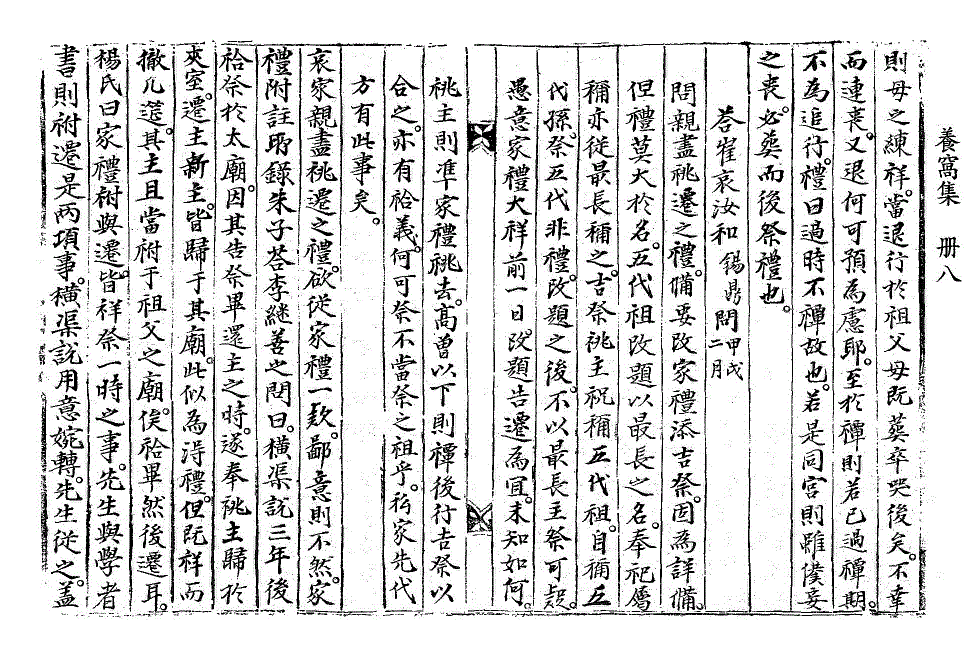 養窩集 册八
則母之練祥。當退行於祖父母旣葬卒哭後矣。不幸
而連喪。又退何可預爲慮耶。至於禫則若已過禫期。
不爲追行。禮曰過時不禫故也。若是同宮則雖僕妾
之喪。必葬而後祭禮也。
答崔哀汝和 錫鼎 問 甲戌二月
問親盡祧遷之禮。備要改家禮添吉祭。固爲詳備。
但禮莫大於名。五代祖改題以最長之名。奉祀屬
稱亦從最長稱之。古祭祧主祝稱五代祖。自稱五
代孫。祭五代非禮。改題之後。不以最長主祭可疑。
愚意家禮大祥前一日。改題告遷爲宜。未知如何。
祧主則準家禮祧去。高曾以下則禫後行吉祭以
合之。亦有祫義。何可祭不當祭之祖乎。私家先代
方有此事矣。
哀家親盡祧遷之禮。欲從家禮一款。鄙意則不然。家
禮附註所錄朱子答李繼善之問曰。橫渠說三年後
祫祭於太廟。因其告祭畢還主之時。遂奉祧主歸於
夾室。遷主新主。皆歸于其廟。此似爲得禮。但旣祥而
撤几筵。其主且當祔于祖父之廟。俟祫畢然後遷耳。
楊氏曰家禮祔與遷。皆祥祭一時之事。先生與學者
書則祔遷是兩項事。橫渠說用意婉轉。先生從之。蓋